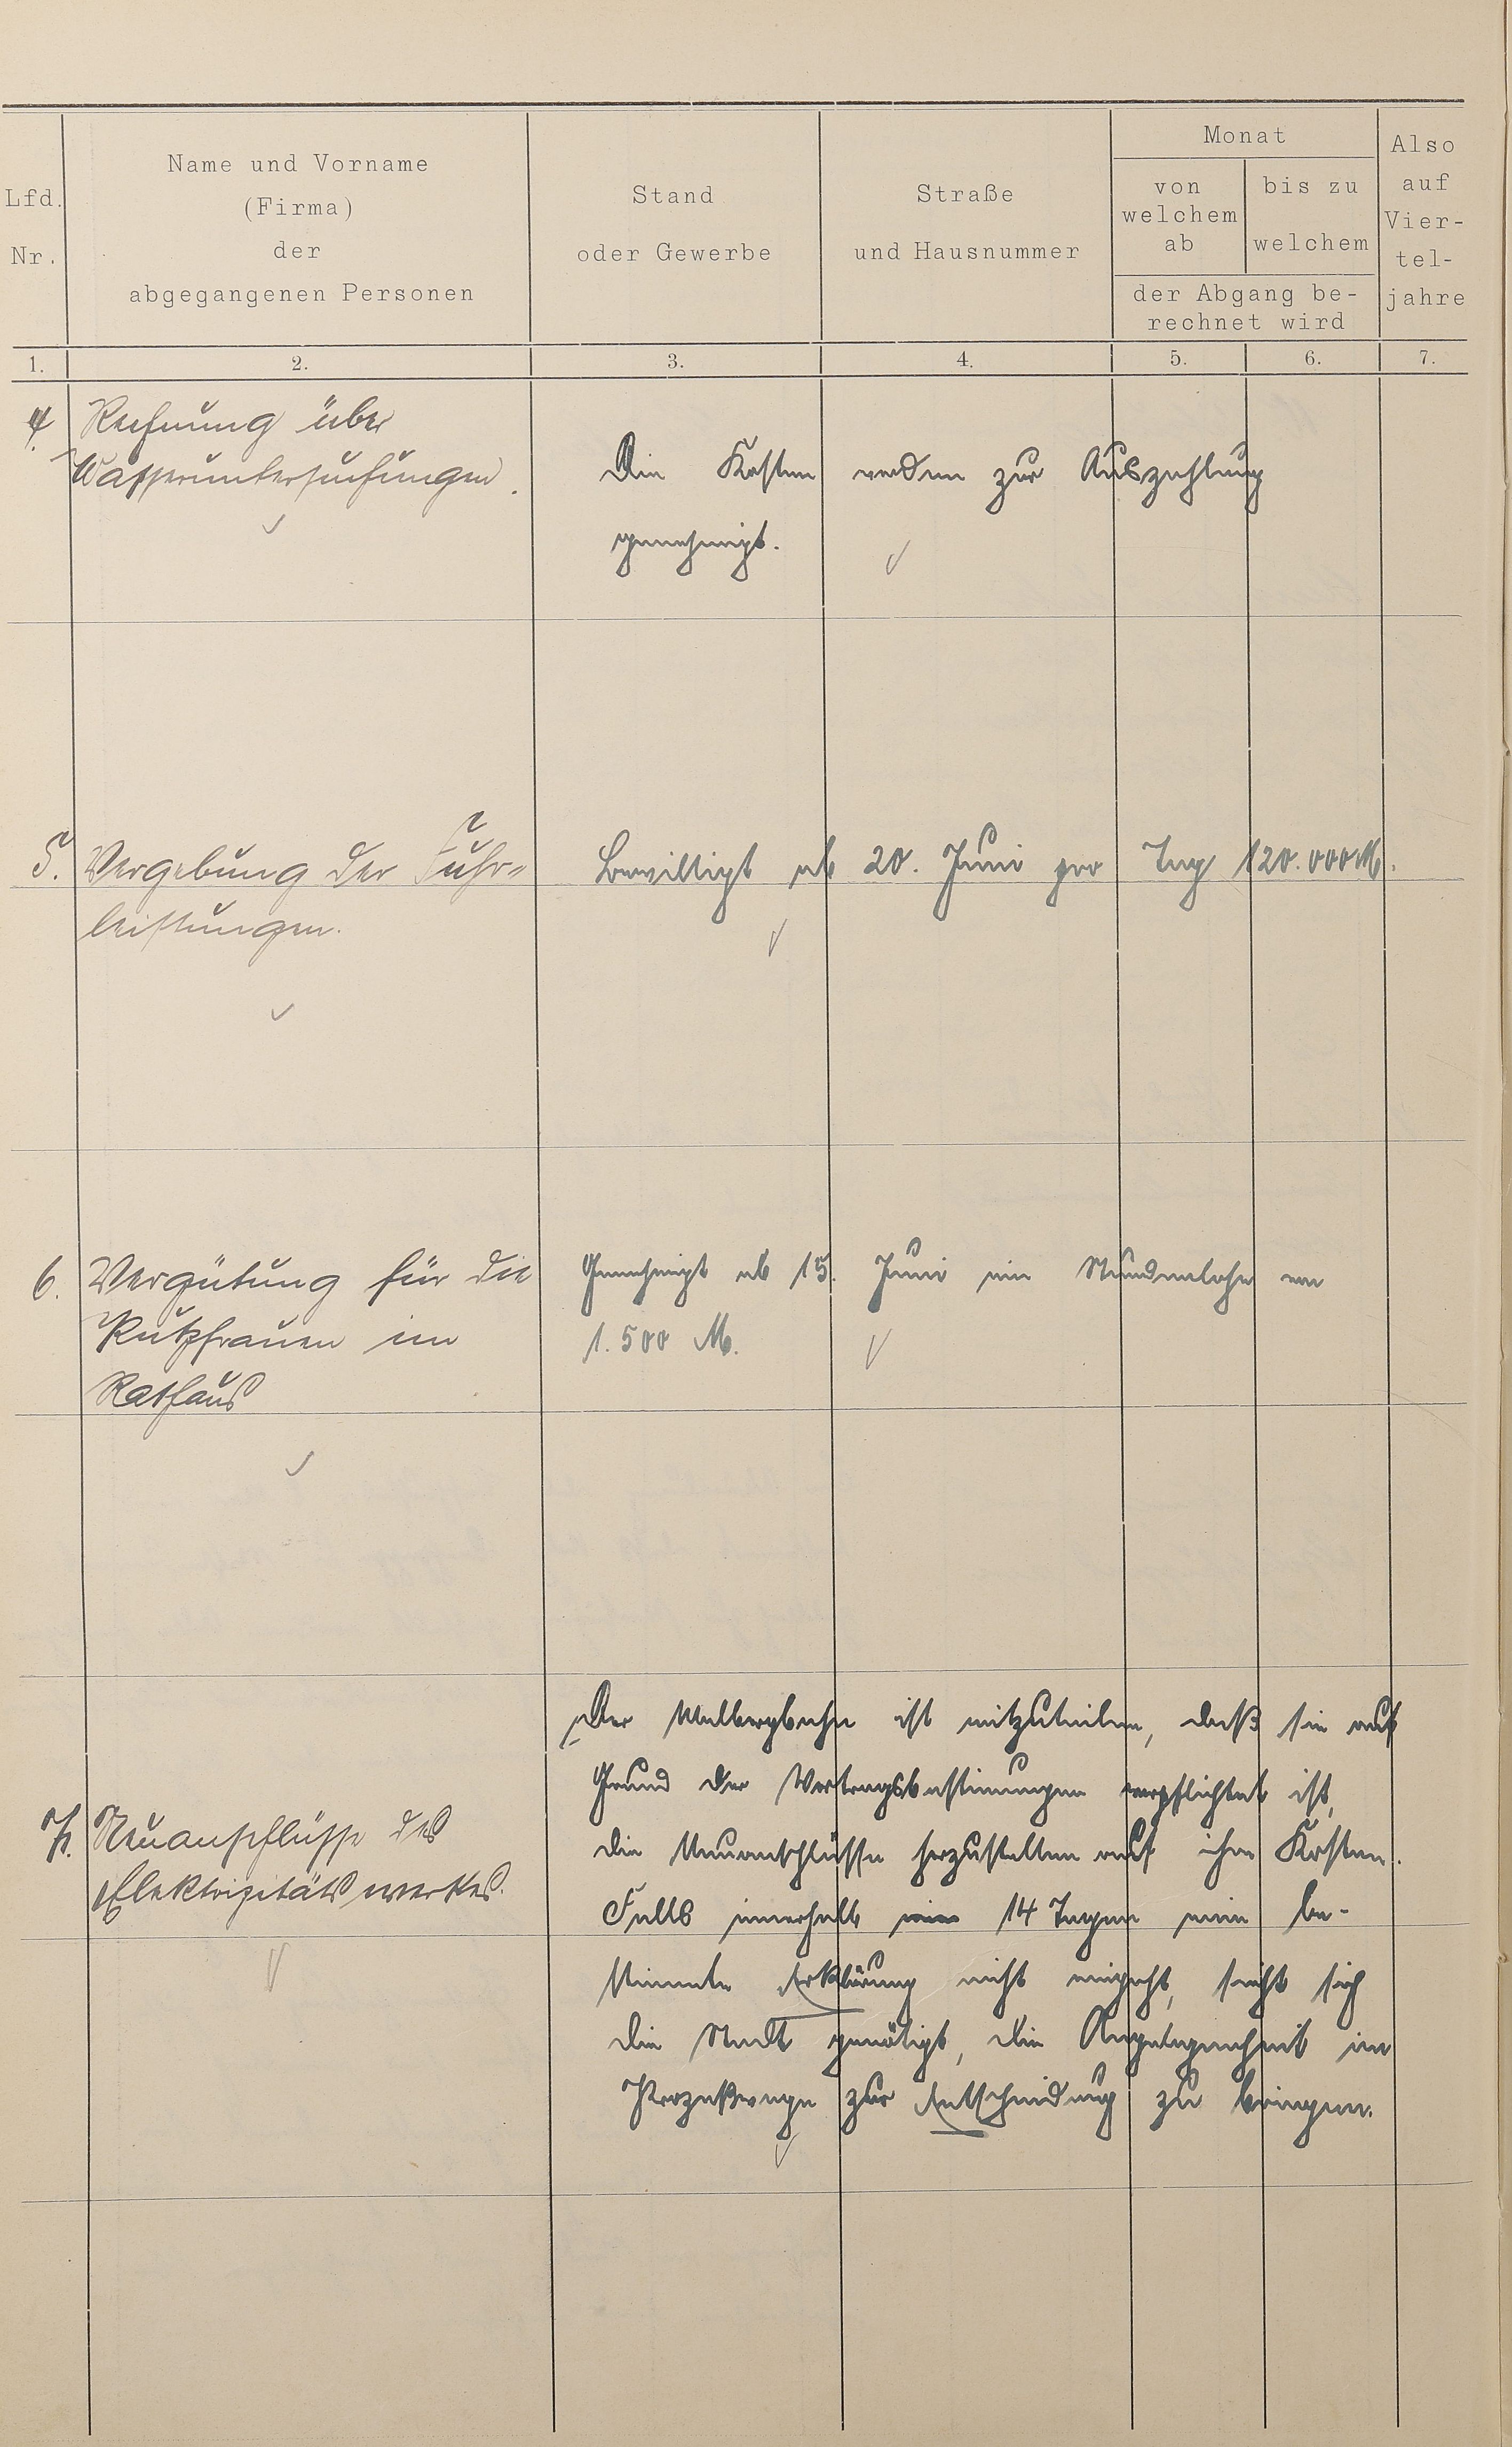 Lfd.
Nr.
Name und Vorname
(Firma)
der
abgegangenen Personen
Stand
oder Gewerbe
Straße
und Hausnummer
Monat
von
welchem
ab
bis zu
welchem
der Abgang be-
rechnet wird
Also
auf
Vier-
tel-
jahre
1. 2. 3. 4. 5. 6. 7.
4. Rechnung über
Wasseruntersuchungen.
Die Kosten werden zur Auszahlung
genehmigt.
5. Vergebung der Fuhr-
leistungen.
Bewilligt ab 20. Juni pro Tag 120.000 M.
6. Vergütung für die
Putzfrauen im
Rathaus
Genehmigt ab 15. Juni ein Stundenlohn von
1.500 M.
7. Neuanschlüsse des
Elektrizitätswerkes.
Der Walbergbahn ist mitzuteilen, daß sie auf
Grund der Vertragsbestimmungen verpflichtet ist,
die Neuanschlüsse herzustellen auf ihre Kosten.
Falls innerhalb 14 Tagen eine be-
stimmte Erklärung nicht eingeht, sieht sich
die Stadt genötigt, die Angelegenheit im
Prozeßwege zur Entscheidung zu bringen.